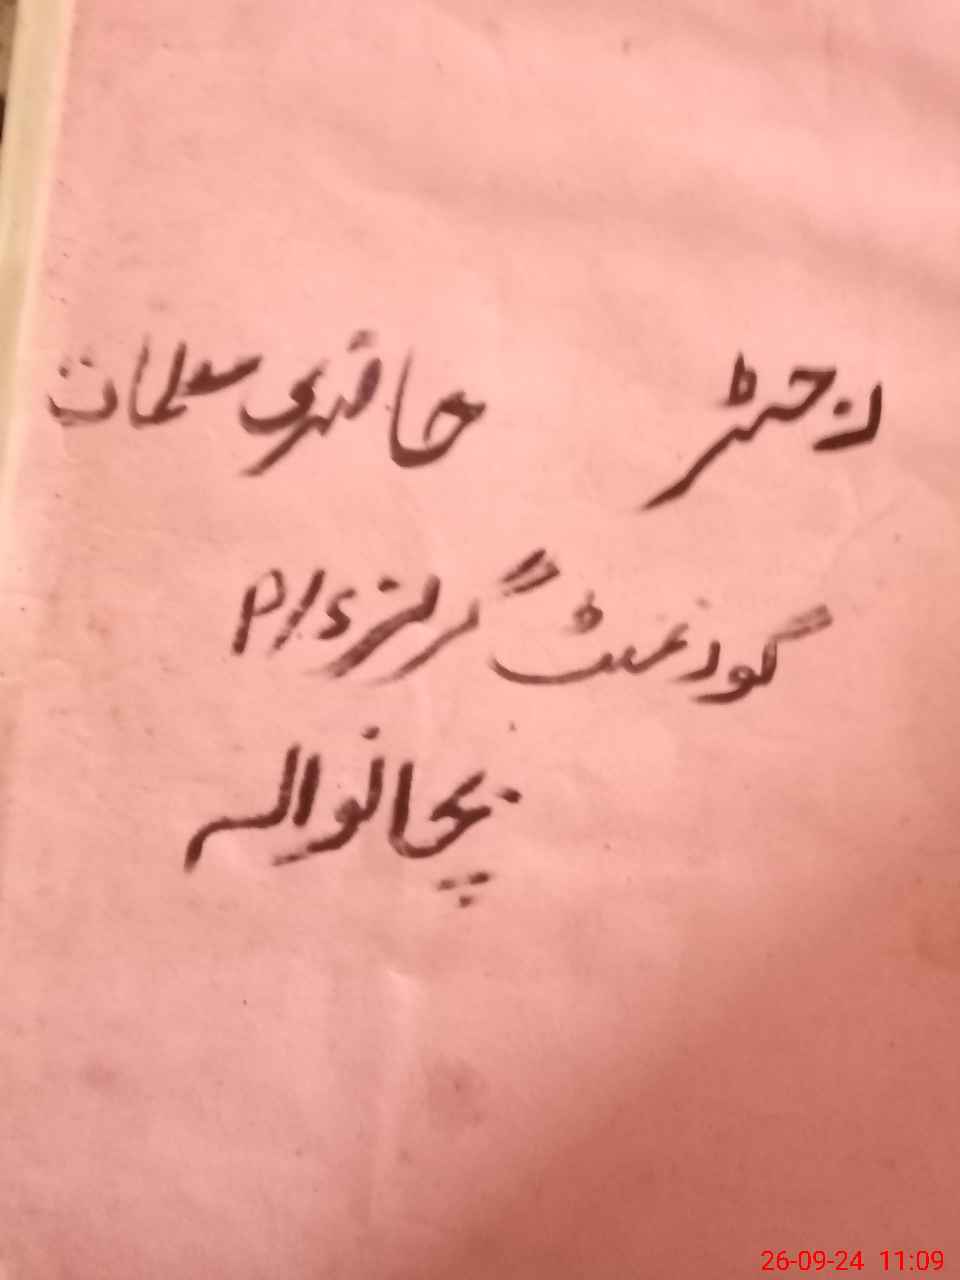 رجسٹر حاضری معلمات
گورنمنٹ گرلز P/S
بچانوالہ
26-09-24 11:09